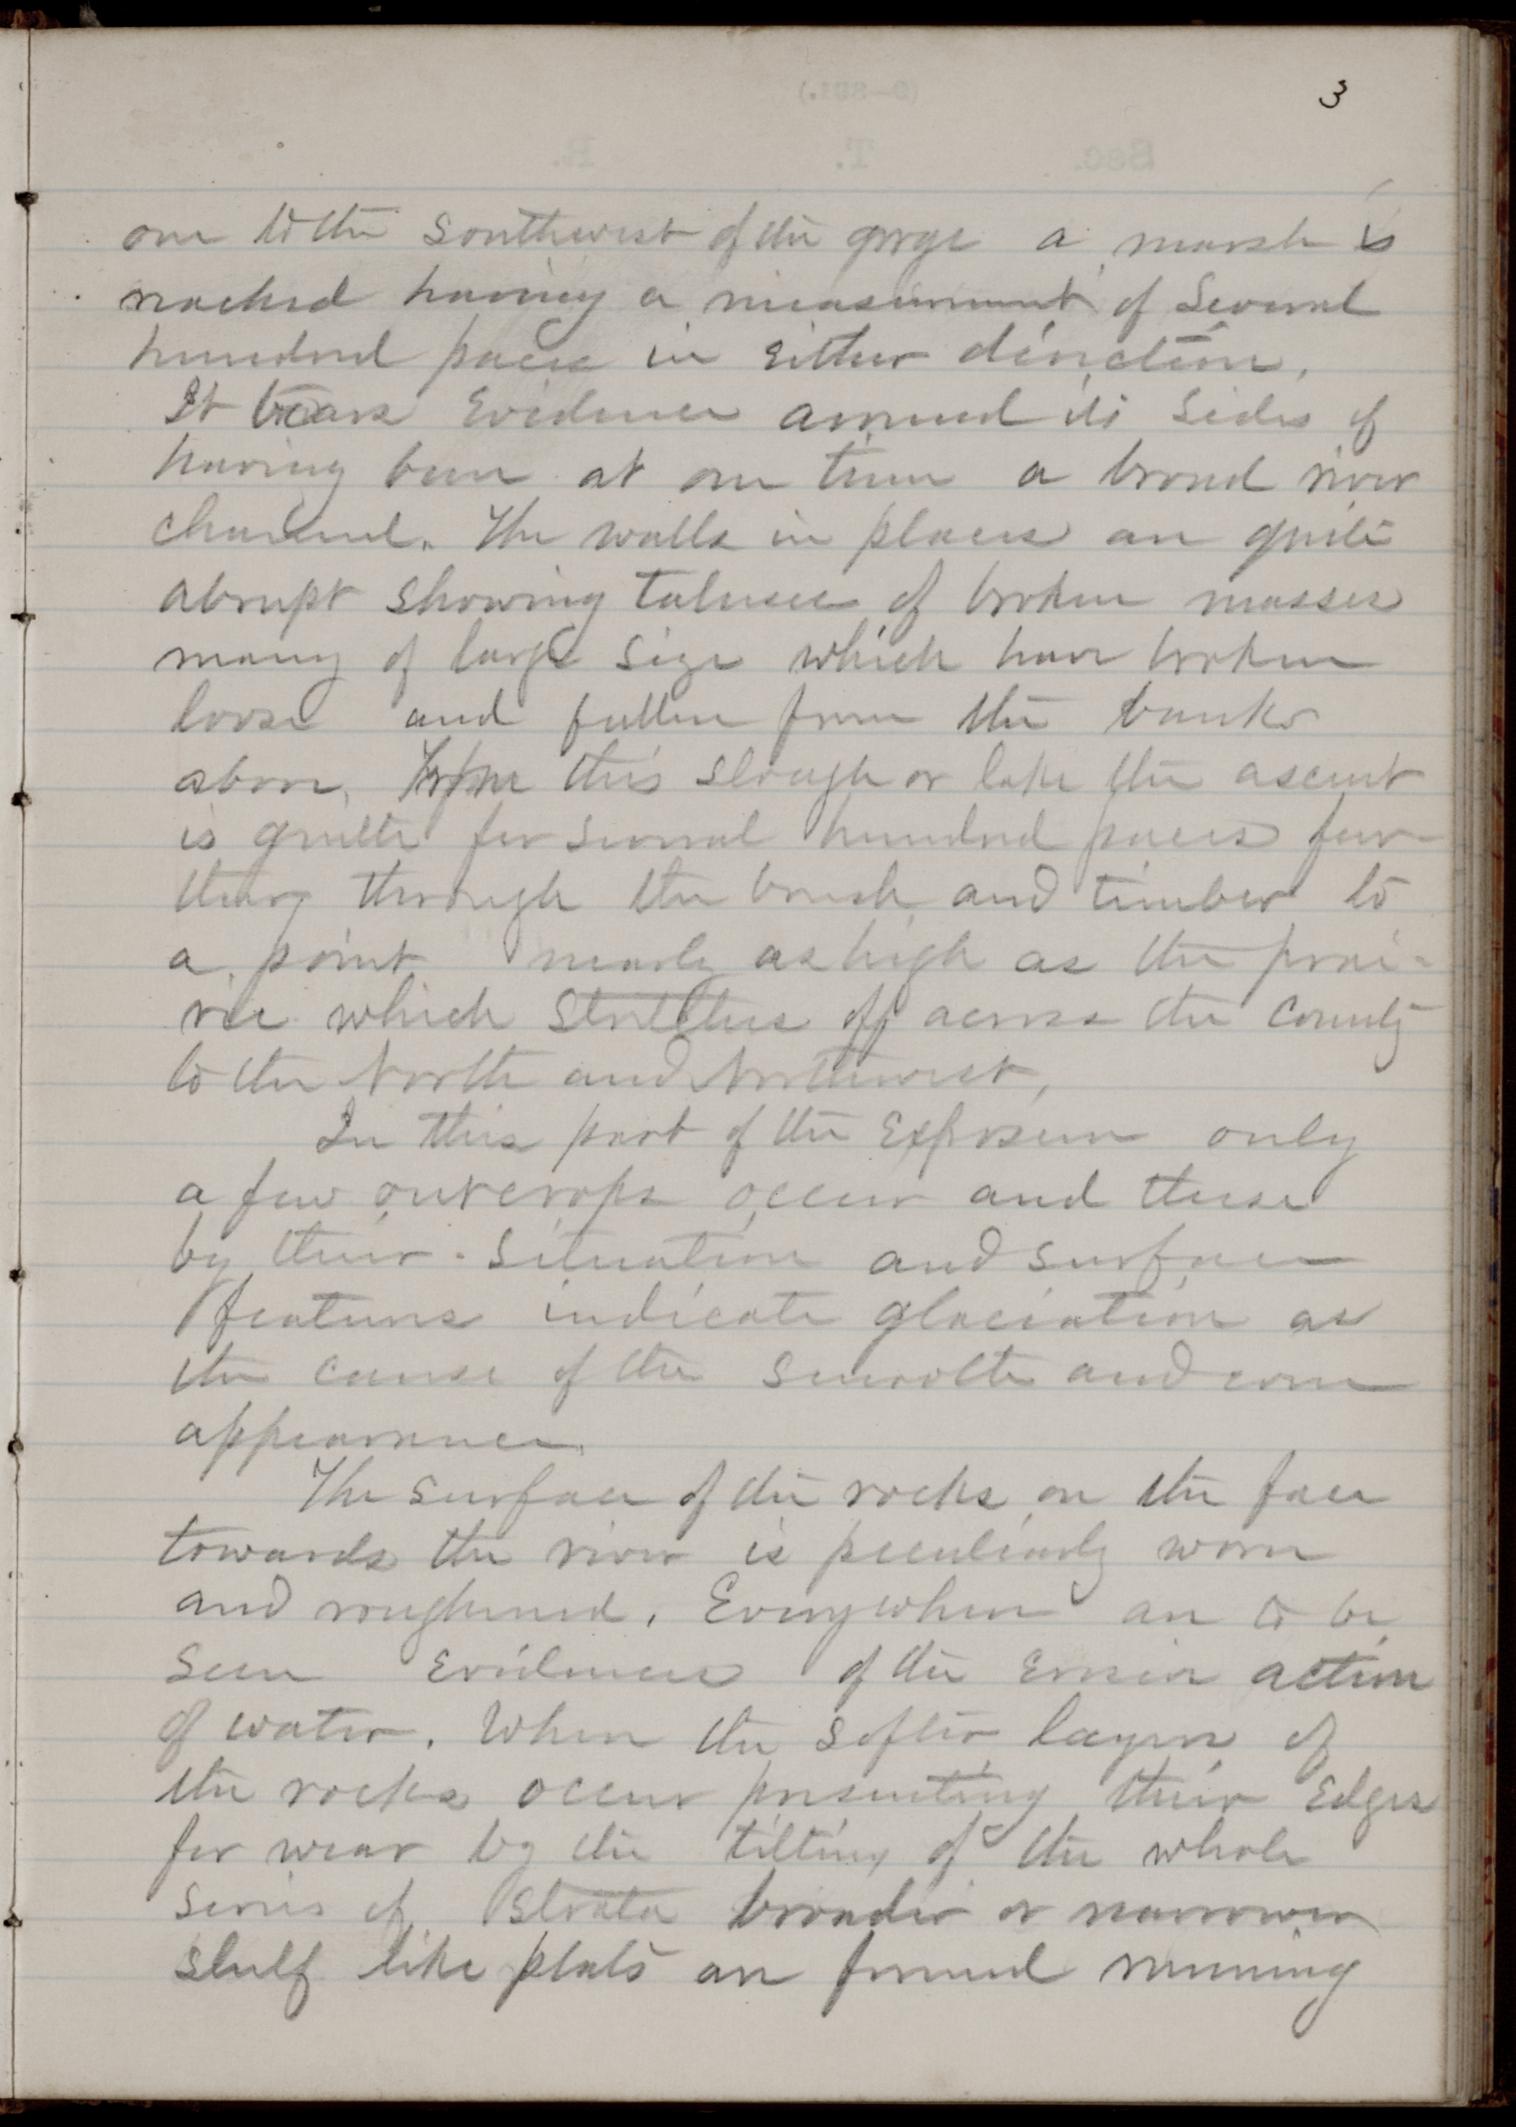 3
one to the Southwest of the gorge a marsh is
reached having a measurement of Several
hundred paces in Either direction.
It bears Evidence around its Sides of
having been at one time a broad river
channel. The walls in places are quite
abrupt showing taluses of broken masses
many of large Size which have broken
loose and fallen from the banks
above. From this Slough or lake the ascent
is gentle for several hundred paces fur-
ther through the brush and timber to
a point nearly as high as the prai-
rie which Stretches off across the County
to the North and Northwest,
In this part of the Exposure only
a few outcrops occur and these
by their situation and surface
features indicate glaciation as
the cause of the Smooth and even
appearance.
The surface of the rocks on the face
towards the river is peculiarly worn
and roughened. Everywhere are to be
seen Evidences of the Erosive action
of water. When the softer layers of
the rocks occur presenting their Edges
for wear by the tilting of the whole
series of Strata broader or narrower
shelf like plats are formed running